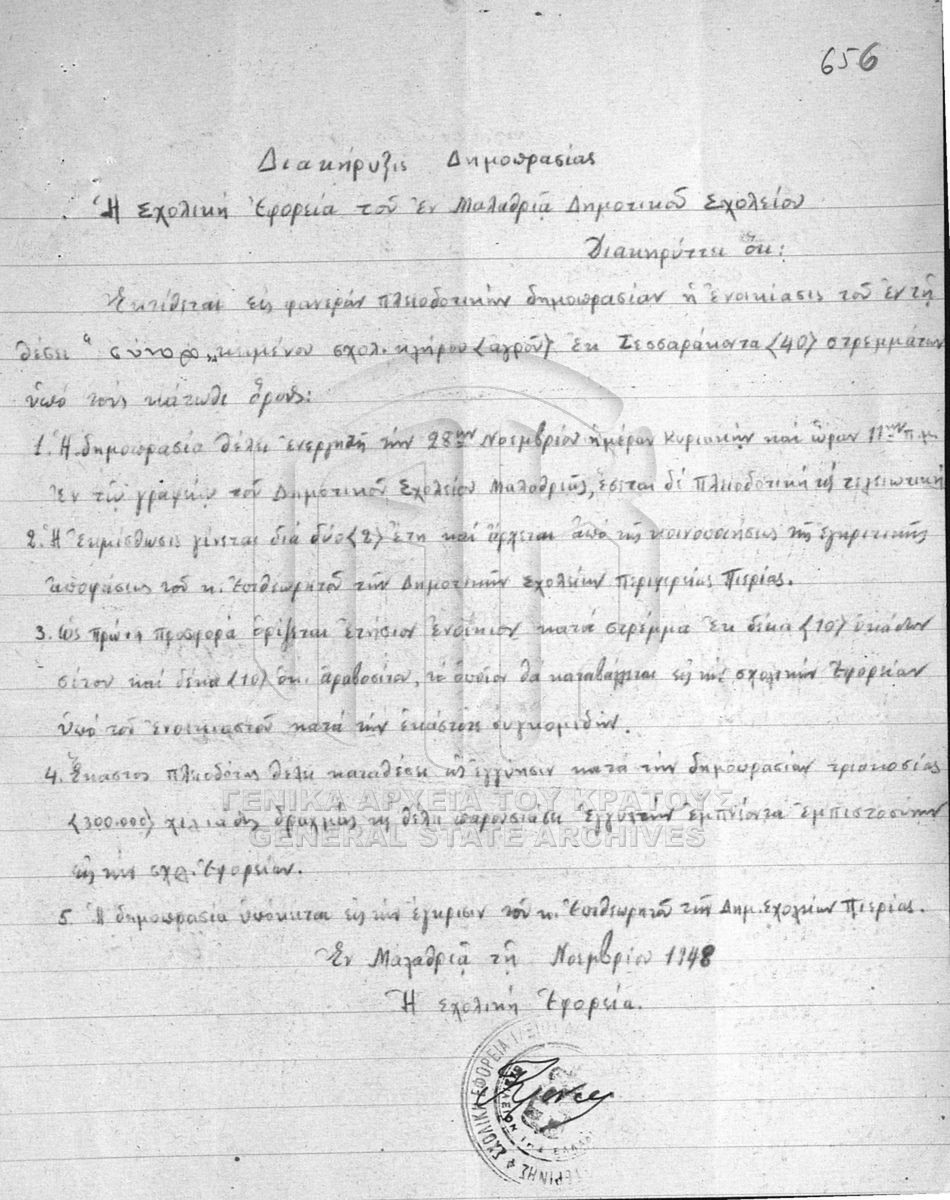 656
Διακήρυξις Δημοπρασίας
Ἡ Σχολική Ἐφορεία τοῦ ἐν Μαλαθριᾷ Δημοτικοῦ Σχολείου
Διακηρύττει ὅτι:
Ἐκτίθεται εἰς φανεράν πλειοδοτικήν δημοπρασίαν ἡ ἐνοικίασις τοῦ ἐν τῇ
θέσει " " κειμένου σχολ. κλήρου (ἀγροῦ) ἐκ Τεσσαράκοντα (40) στρεμμάτων
ὑπό τούς κάτωθι ὅρους:
1. Ἡ δημοπρασία θέλει ἐνεργηθῇ τήν 28ην Νοεμβρίου ἡμέραν Κυριακήν καί ὥραν 11ην π.μ.
ἐν τῷ γραφείῳ τοῦ Δημοτικοῦ Σχολείου Μαλαθριᾶς, ἔσεται δέ πλειοδοτική τελειωτική
2. Ἡ ἐκμίσθωσις γίνεται διά δύο (2) ἔτη καί ἄρχεται ἀπό τῆς κοινοποιήσεως τῆς ἐγκριτικῆς
ἀποφάσεως τοῦ κ. Ἐπιθεωρητοῦ τῶν Δημοτικῶν Σχολείων Περιφερείας Πιερίας.
3. Ὡς πρώτη προσφορά ὁρίζεται ἐτήσιον ἐνοίκιον κατά στρέμμα ἐκ δέκα (10) ὀκάδων
σίτου καί δέκα (10) ὀκ. ἀραβοσίτου, τό ὁποῖον θά καταβάλλεται εἰς τήν σχολικήν Ἐφορείαν
ὑπό τοῦ ἐνοικιαστοῦ κατά τήν ἑκάστοτε συγκομιδήν.
4. Ἕκαστος πλειοδότης θέλει καταθέσει ὡς ἐγγύησιν κατά τήν δημοπρασίαν τριακοσίας
(300.000) χιλιάδας δραχμάς ἤ θέλει παρουσιάσει ἐγγυητήν ἐμπνέοντα ἐμπιστοσύνην
εἰς τήν σχολ. Ἐφορείαν.
ΓΕΝΙΚΑ ΑΡΧΕΙΑ ΤΟΥ ΚΡΑΤΟΥΣ
GENERAL STATE ARCHIVES
5. Ἡ δημοπρασία ὑπόκειται εἰς τήν ἔγκρισιν τοῦ κ. Ἐπιθεωρητοῦ τῶν Δημ. Σχολείων Πιερίας.
Ἐν Μαλαθριᾷ τῇ Νοεμβρίου 1948
Ἡ Σχολική Ἐφορεία.
ΣΧΟΛΙΚΗ ΕΦΟΡΕΙΑ